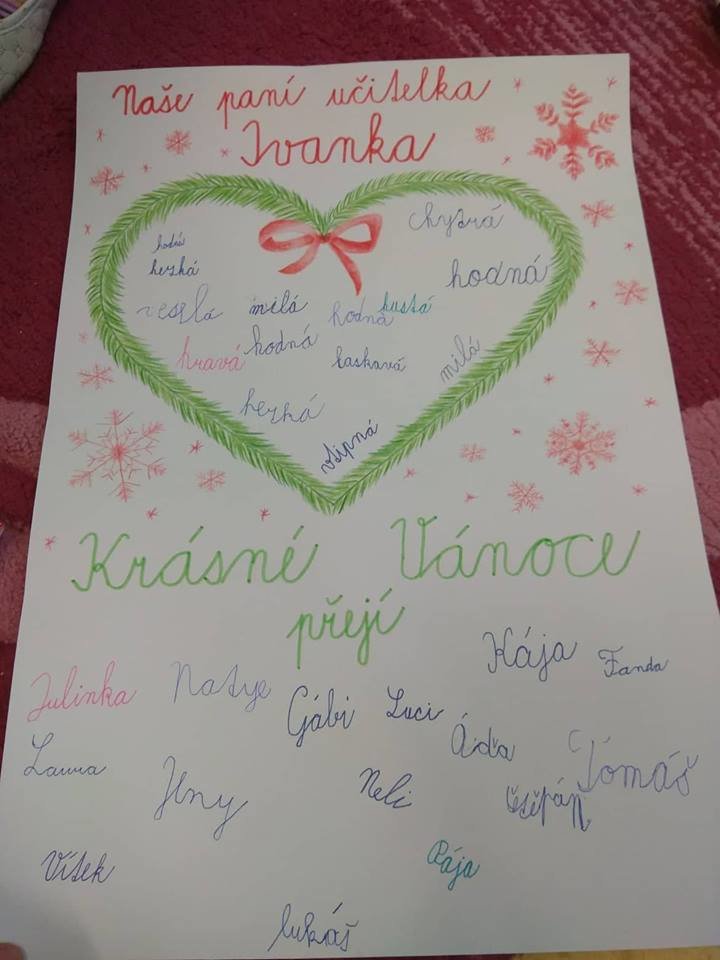 Naše paní učitelka
Ivanka
chytrá
hodná
hezká
hodná
veselá milá hodná hustá
hravá hodná laskavá milá
hezká
vtipná
Krásné Vánoce
přejí
Kája Fanda
Julinka Natye Gábi Luci
Áďa
Laura Tomáš
Jeny Neli Štěpán
Vítek Rája
lukáš